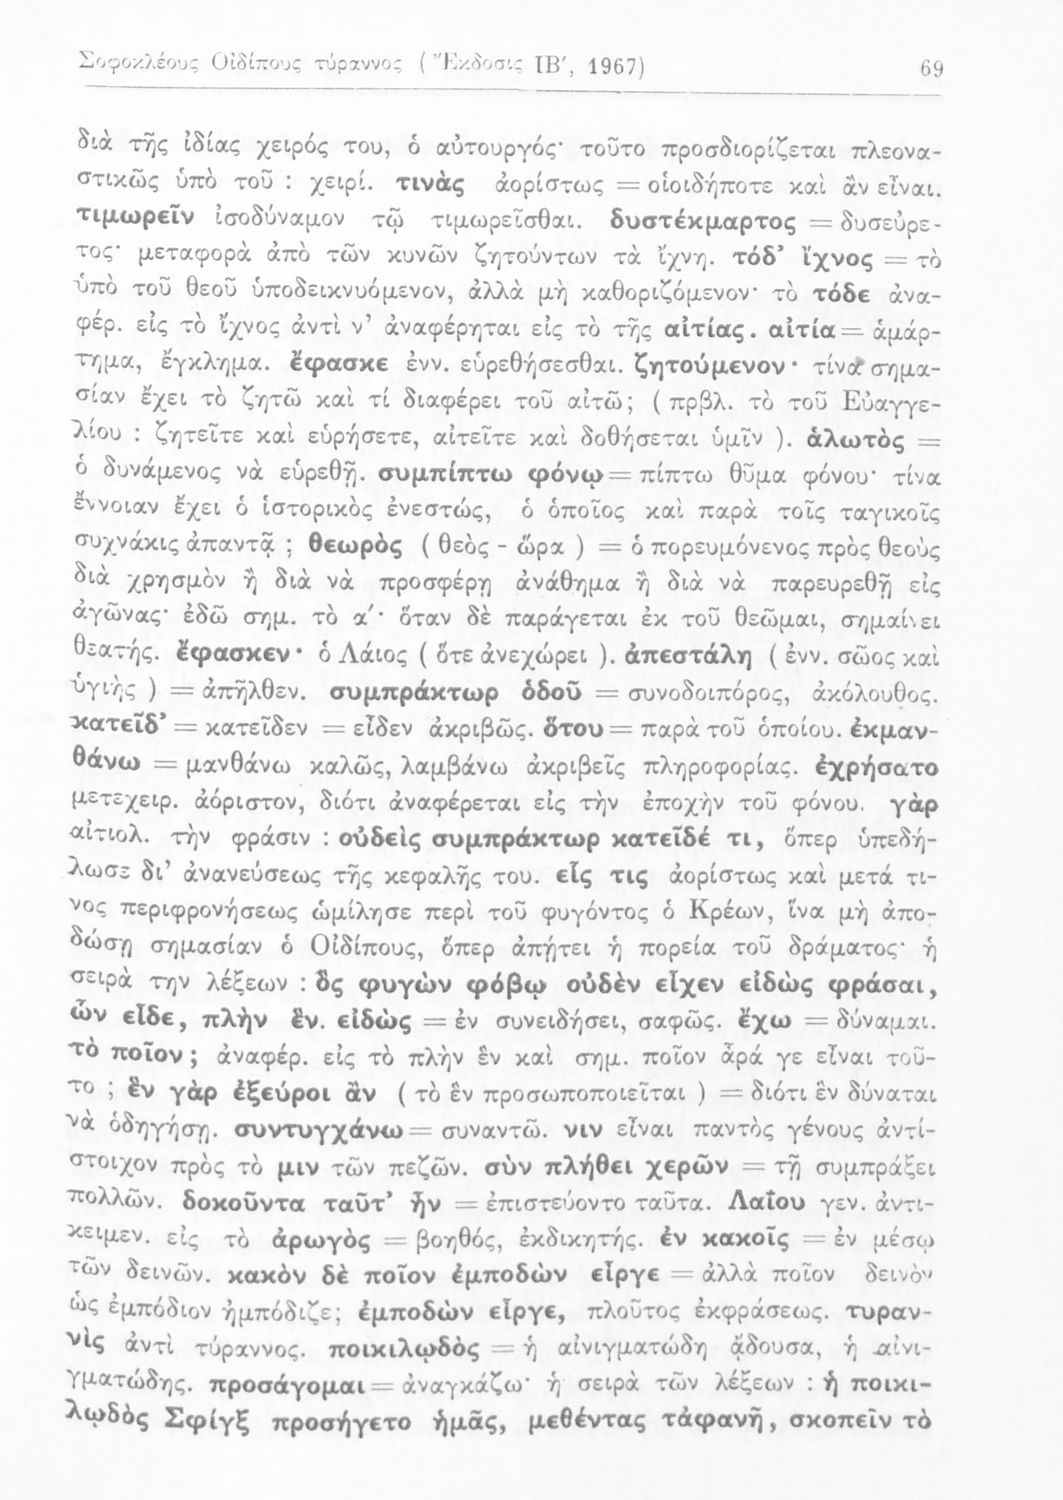 Σοφοκλέους Οἰδίπους τύραννος ( Ἔκδοσις ΙΒ′, 1967) 69
διὰ τῆς ἰδίας χειρός του, ὁ αὐτουργός· τοῦτο προσδιορίζεται πλεονα-
στικῶς ὑπὸ τοῦ : χειρί. τινὰς ἀορίστως = οἱοιδήποτε καὶ ἂν εἶναι.
τιμωρεῖν ἰσοδύναμον τῷ τιμωρεῖσθαι. δυστέκμαρτος = δυσεύρε-
τος· μεταφορὰ ἀπὸ τῶν κυνῶν ζητούντων τὰ ἴχνη. τόδ’ ἴχνος = τὸ
ὑπὸ τοῦ θεοῦ ὑποδεικνυόμενον, ἀλλὰ μὴ καθοριζόμενον· τὸ τόδε ἀνα-
φέρ. εἰς τὸ ἴχνος ἀντὶ ν’ ἀναφέρηται εἰς τὸ τῆς αἰτίας. αἰτία = ἁμάρ-
τημα, ἔγκλημα. ἔφασκε ἐνν. εὑρεθήσεσθαι. ζητούμενον· τίνα σημα-
σίαν ἔχει τὸ ζητῶ καὶ τί διαφέρει τοῦ αἰτῶ; ( πρβλ. τὸ τοῦ Εὐαγγε-
λίου : ζητεῖτε καὶ εὑρήσετε, αἰτεῖτε καὶ δοθήσεται ὑμῖν ). ἁλωτὸς =
ὁ δυνάμενος νὰ εὑρεθῇ. συμπίπτω φόνῳ = πίπτω θῦμα φόνου· τίνα
ἔννοιαν ἔχει ὁ ἱστορικὸς ἐνεστώς, ὁ ὁποῖος καὶ παρὰ τοῖς ταγικοῖς
συχνάκις ἀπαντᾷ ; θεωρὸς ( θεὸς - ὥρα ) = ὁ πορευμόνενος πρὸς θεοὺς
διὰ χρησμὸν ἢ διὰ νὰ προσφέρῃ ἀνάθημα ἢ διὰ νὰ παρευρεθῇ εἰς
ἀγῶνας· ἐδῶ σημ. τὸ α′· ὅταν δὲ παράγεται ἐκ τοῦ θεῶμαι, σημαίνει
θεατής. ἔφασκεν· ὁ Λάιος ( ὅτε ἀνεχώρει ). ἀπεστάλη ( ἐνν. σῶος καὶ
ὑγιὴς ) = ἀπῆλθεν. συμπράκτωρ ὁδοῦ = συνοδοιπόρος, ἀκόλουθος.
κατεῖδ’ = κατεῖδεν = εἶδεν ἀκριβῶς. ὅτου = παρὰ τοῦ ὁποίου. ἐκμαν-
θάνω = μανθάνω καλῶς, λαμβάνω ἀκριβεῖς πληροφορίας. ἐχρήσατο
μετεχειρ. ἀόριστον, διότι ἀναφέρεται εἰς τὴν ἐποχὴν τοῦ φόνου. γὰρ
αἰτιολ. τὴν φράσιν : οὐδεὶς συμπράκτωρ κατεῖδέ τι, ὅπερ ὑπεδή-
λωσε δι’ ἀνανεύσεως τῆς κεφαλῆς του. εἷς τις ἀορίστως καὶ μετά τι-
νος περιφρονήσεως ὡμίλησε περὶ τοῦ φυγόντος ὁ Κρέων, ἵνα μὴ ἀπο-
δώσῃ σημασίαν ὁ Οἰδίπους, ὅπερ ἀπῄτει ἡ πορεία τοῦ δράματος· ἡ
σειρὰ την λέξεων : ὃς φυγὼν φόβῳ οὐδὲν εἶχεν εἰδὼς φράσαι,
ὧν εἶδε, πλὴν ἕν. εἰδὼς = ἐν συνειδήσει, σαφῶς. ἔχω = δύναμαι.
τὸ ποῖον; ἀναφέρ. εἰς τὸ πλὴν ἓν καὶ σημ. ποῖον ἆρά γε εἶναι τοῦ-
το ; ἓν γὰρ ἐξεύροι ἂν ( τὸ ἓν προσωποποιεῖται ) = διότι ἓν δύναται
νὰ ὁδηγήσῃ. συντυγχάνω = συναντῶ. νιν εἶναι παντὸς γένους ἀντί-
στοιχον πρὸς τὸ μιν τῶν πεζῶν. σὺν πλήθει χερῶν = τῇ συμπράξει
πολλῶν. δοκοῦντα ταῦτ’ ἦν = ἐπιστεύοντο ταῦτα. Λαΐου γεν. ἀντι-
κειμεν. εἰς τὸ ἀρωγὸς = βοηθός, ἐκδικητής. ἐν κακοῖς = ἐν μέσῳ
τῶν δεινῶν. κακὸν δὲ ποῖον ἐμποδὼν εἶργε = ἀλλὰ ποῖον δεινὸν
ὡς ἐμπόδιον ἠμπόδιζε; ἐμποδὼν εἶργε, πλοῦτος ἐκφράσεως. τυραν-
νὶς ἀντὶ τύραννος. ποικιλῳδὸς = ἡ αἰνιγματώδη ᾄδουσα, ἡ αἰνι-
γματώδης. προσάγομαι = ἀναγκάζω· ἡ σειρὰ τῶν λέξεων : ἡ ποικι-
λῳδὸς Σφίγξ προσήγετο ἡμᾶς, μεθέντας τἀφανῆ, σκοπεῖν τὸ